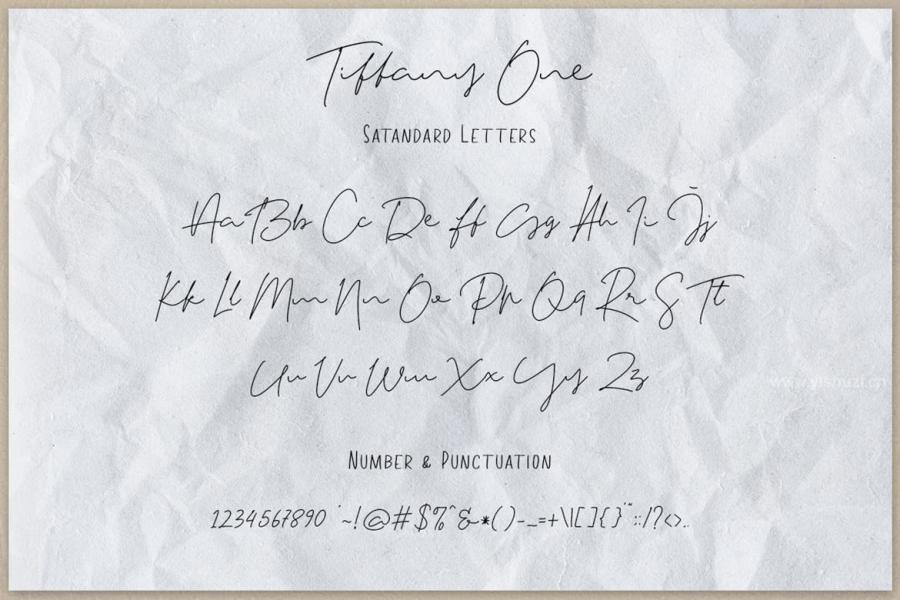 Tiffany One
SATANDARD LETTERS
Aa Bb Cc De ff Gg Hh Ii Jj
Kk Ll Mm Nn Oo Pp Qq Rr S Tt
Uu Vv Ww Xx Yy Zz
www.yishuzi.cn
NUMBER & PUNCTUATION
1234567890 `~!@#$%^&*()-_=+\|[]{}¨:;/?<>..